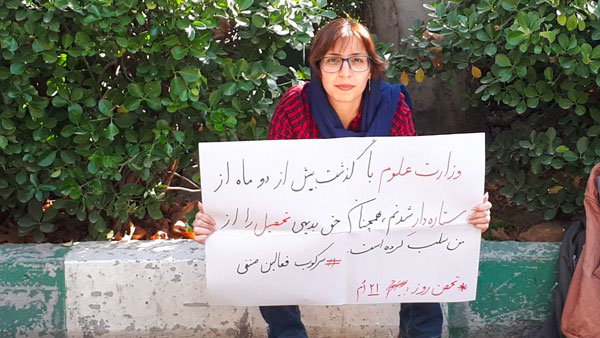 وزارت علوم با گذشت بیش از دو ماه از
ستاره‌دار شدنم، همچنان حق بدیهی تحصیل را از
من سلب کرده است.
#سرکوب فعالین صنفی
#تحصن روز: ۲۱ اُم